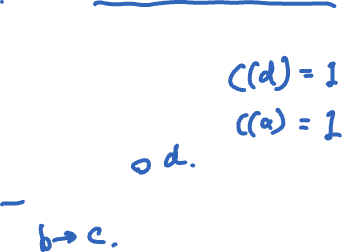 C(d) = 1
C(a) = 1
d.
b → c.